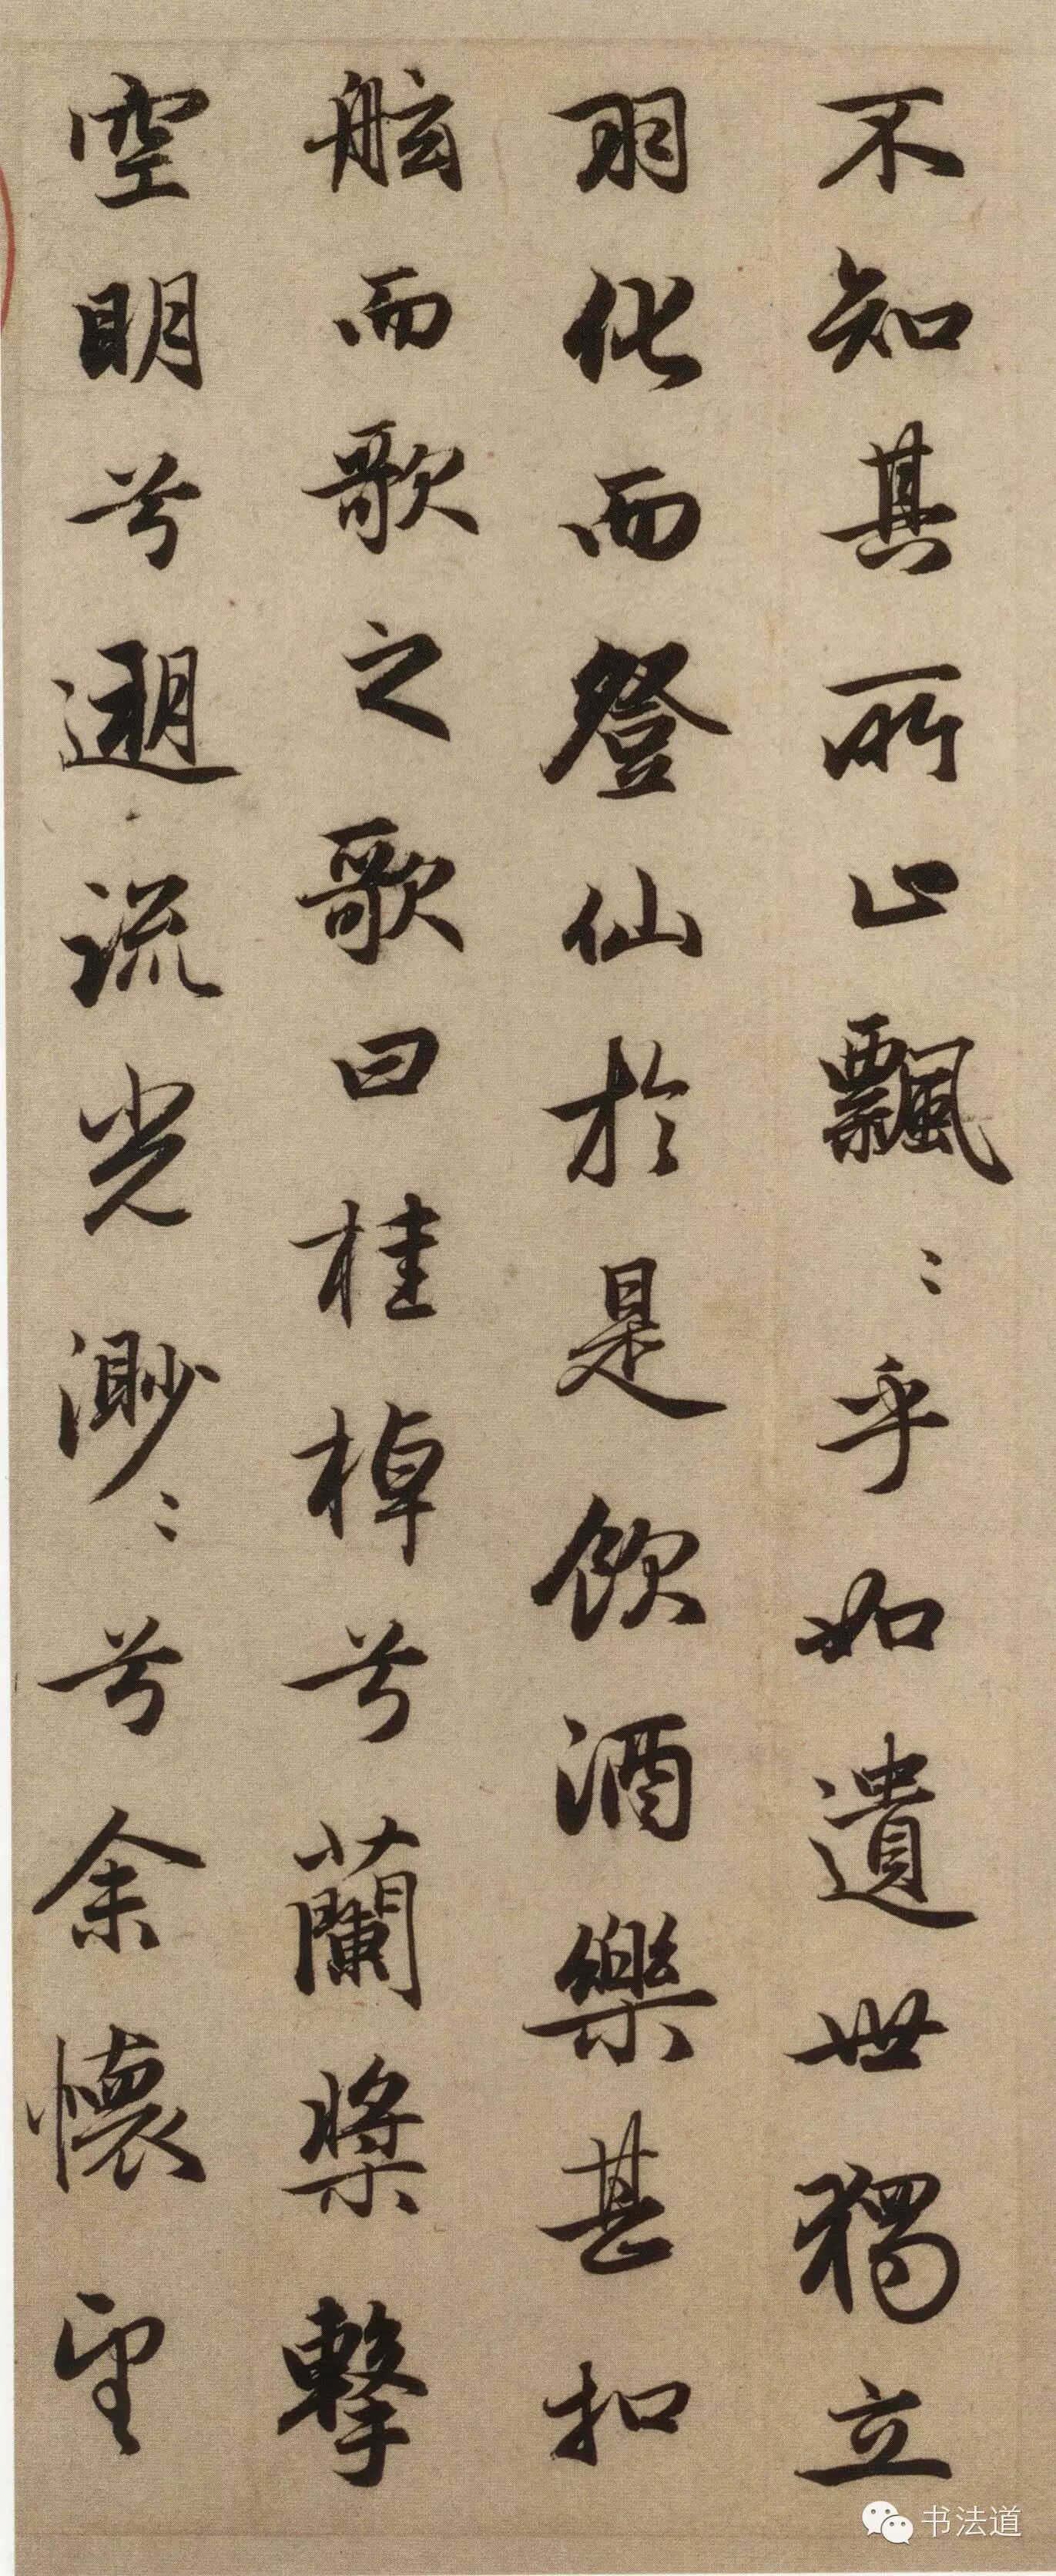 不知其所止飄〻乎如遺世獨立
羽化而登仙於是飲酒樂甚扣
舷而歌之歌曰桂棹兮蘭槳擊
空明兮遡流光渺〻兮余懷望
书法道